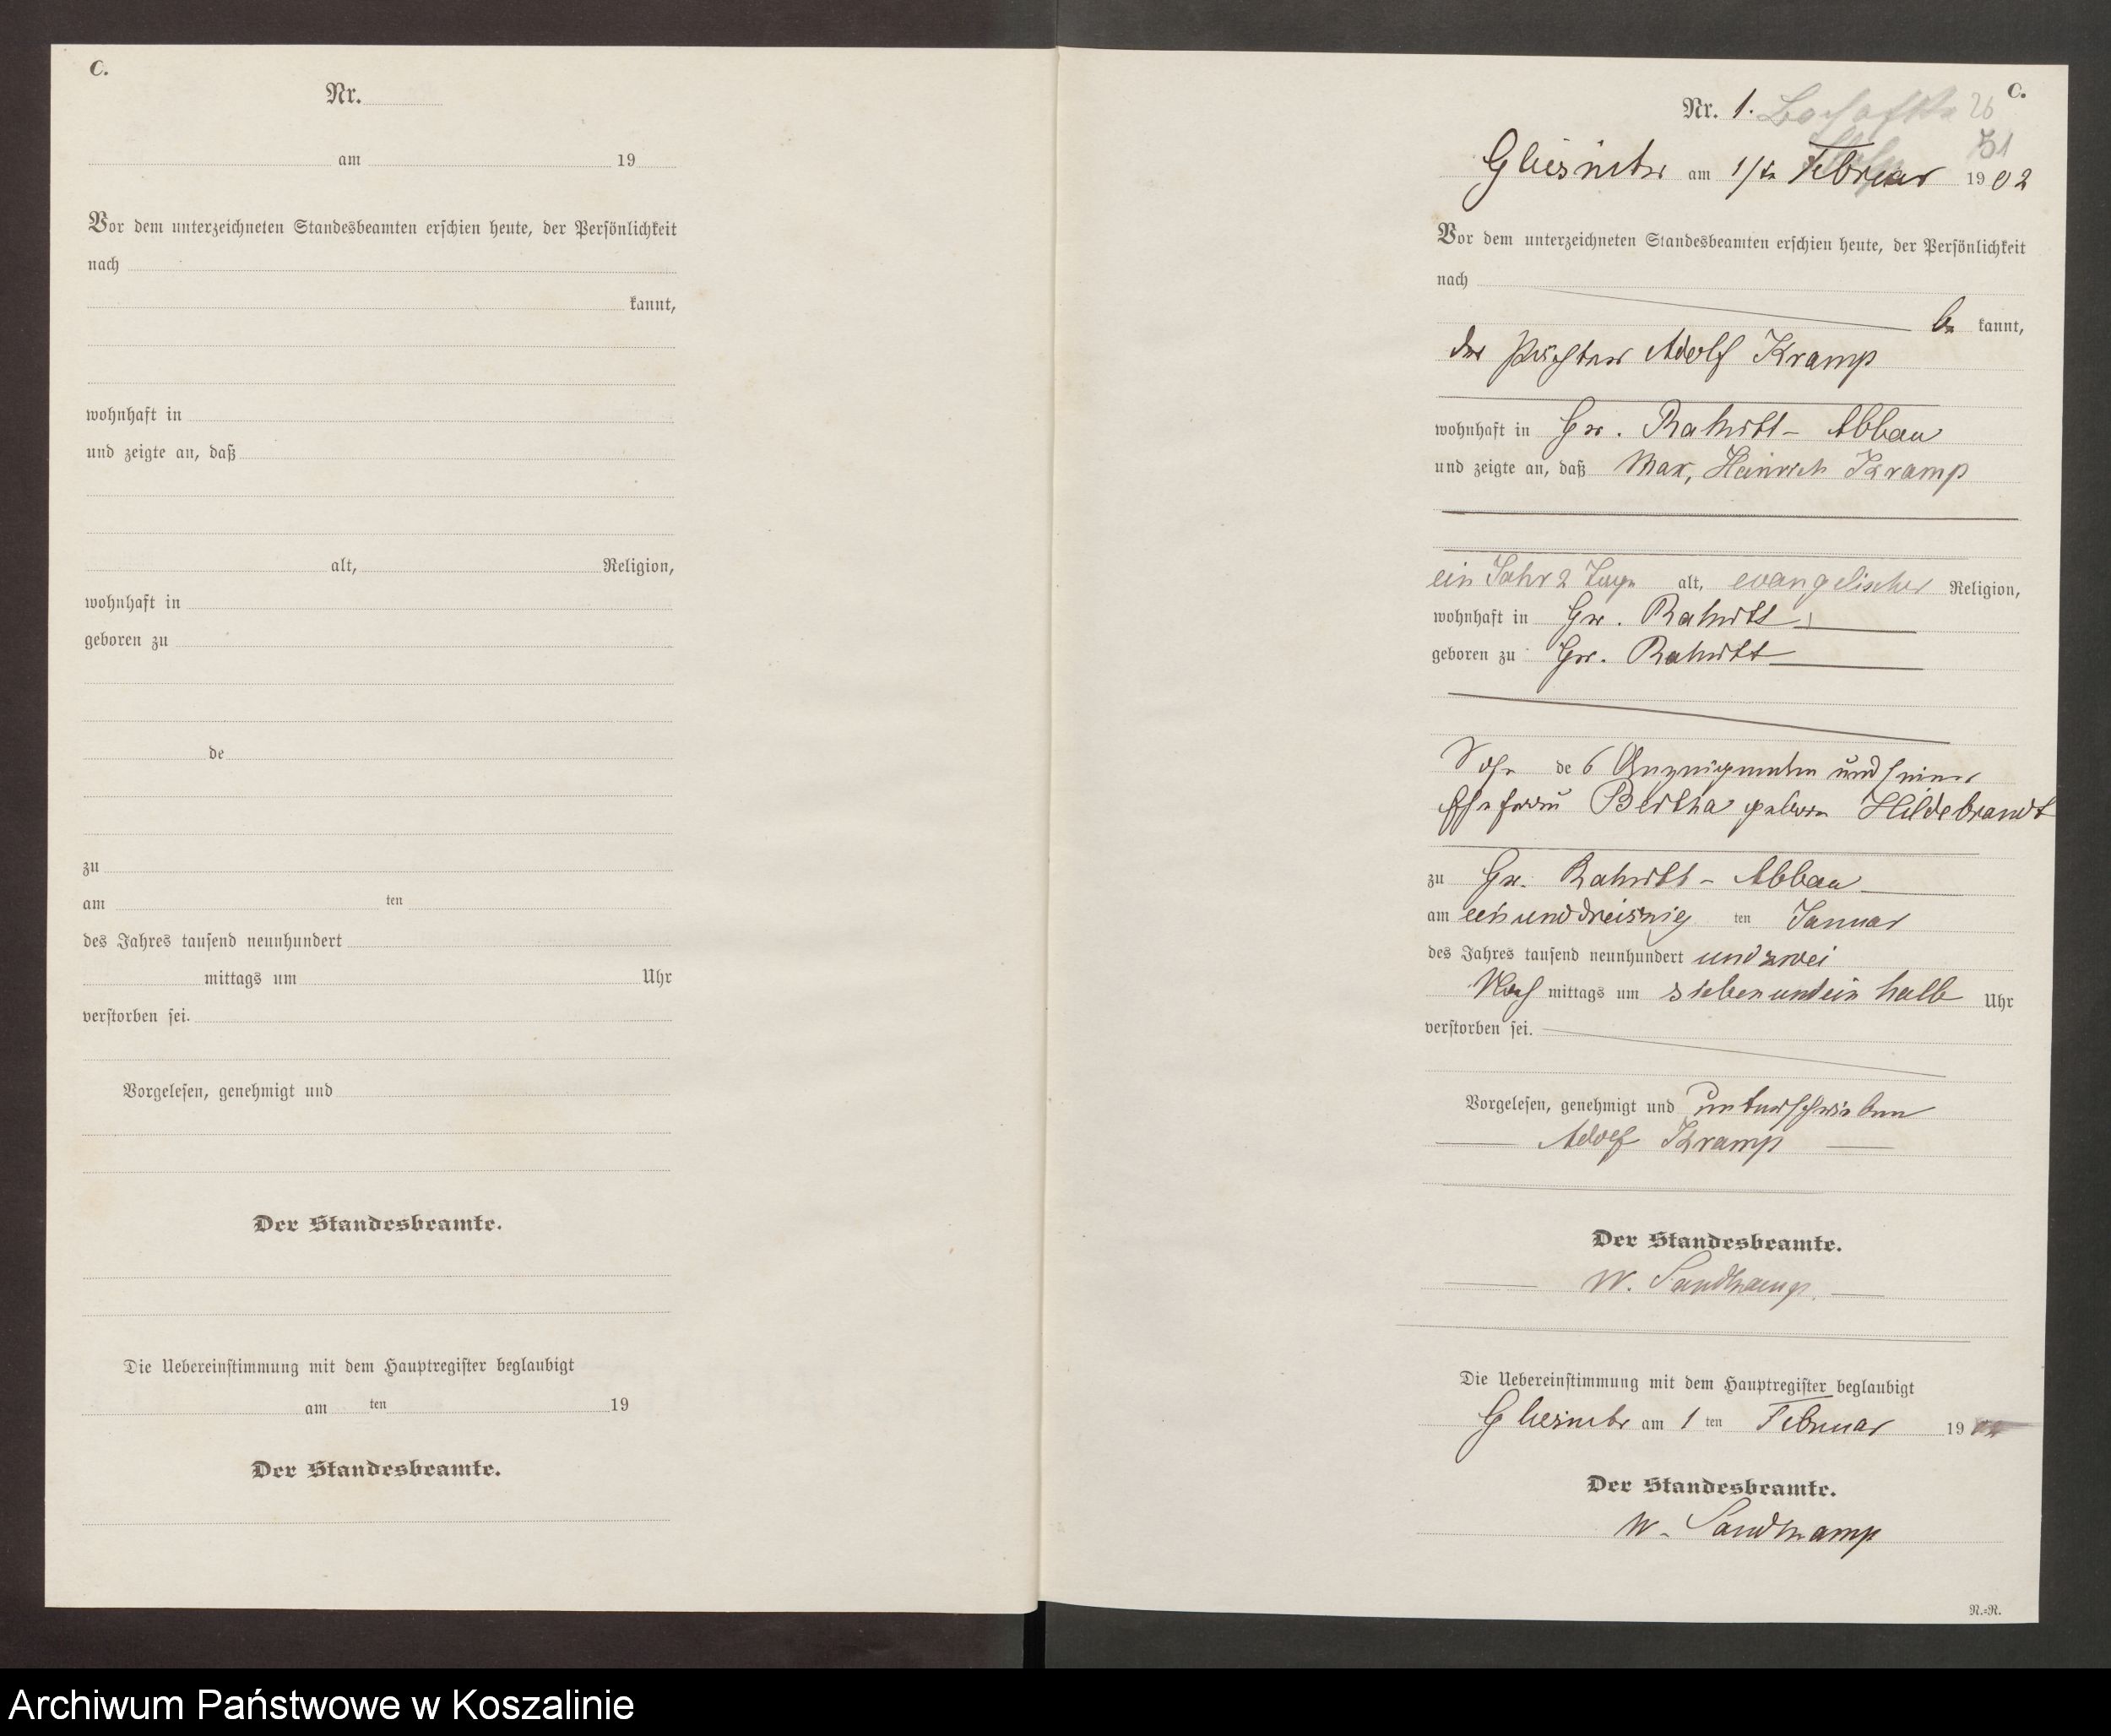 C.
Nr.
am 19
Vor dem unterzeichneten Standesbeamten erschien heute, der Persönlichkeit
nach
kannt,
wohnhaft in
und zeigte an, daß
alt, Religion,
wohnhaft in
geboren zu
de
zu
am ten
des Jahres tausend neunhundert
mittags um Uhr
verstorben sei.
Vorgelesen, genehmigt und
Der Standesbeamte.
Die Uebereinstimmung mit dem Hauptregister beglaubigt
am ten 19
Der Standesbeamte.
C.
Nr. 1. 26
31
am 1ten Februar 1902
Vor dem unterzeichneten Standesbeamten erschien heute, der Persönlichkeit
nach
be kannt,
der Pächter Adolf Kramp
wohnhaft in Gr. Rakitt - Abbau
und zeigte an, daß Max, Heinrich Kramp
ein Jahr 2 Tage alt, evangelischer Religion,
wohnhaft in Gr. Rakitt
geboren zu Gr. Rakitt
Sohn des Anzeigenden und seiner
Ehefrau Bertha geborn Hildebrandt
zu Gr. Rakitt - Abbau
am einunddreiszig ten Januar
des Jahres tausend neunhundert und zwei
Nach mittags um sieben und ein halb Uhr
verstorben sei.
Vorgelesen, genehmigt und unterschrieben
Adolf Kramp
Der Standesbeamte.
W. Sandkamp.
Die Uebereinstimmung mit dem Hauptregister beglaubigt
am 1 ten Februar 1902
Der Standesbeamte.
W. Sandkamp
N.=R.
Archiwum Państwowe w Koszalinie